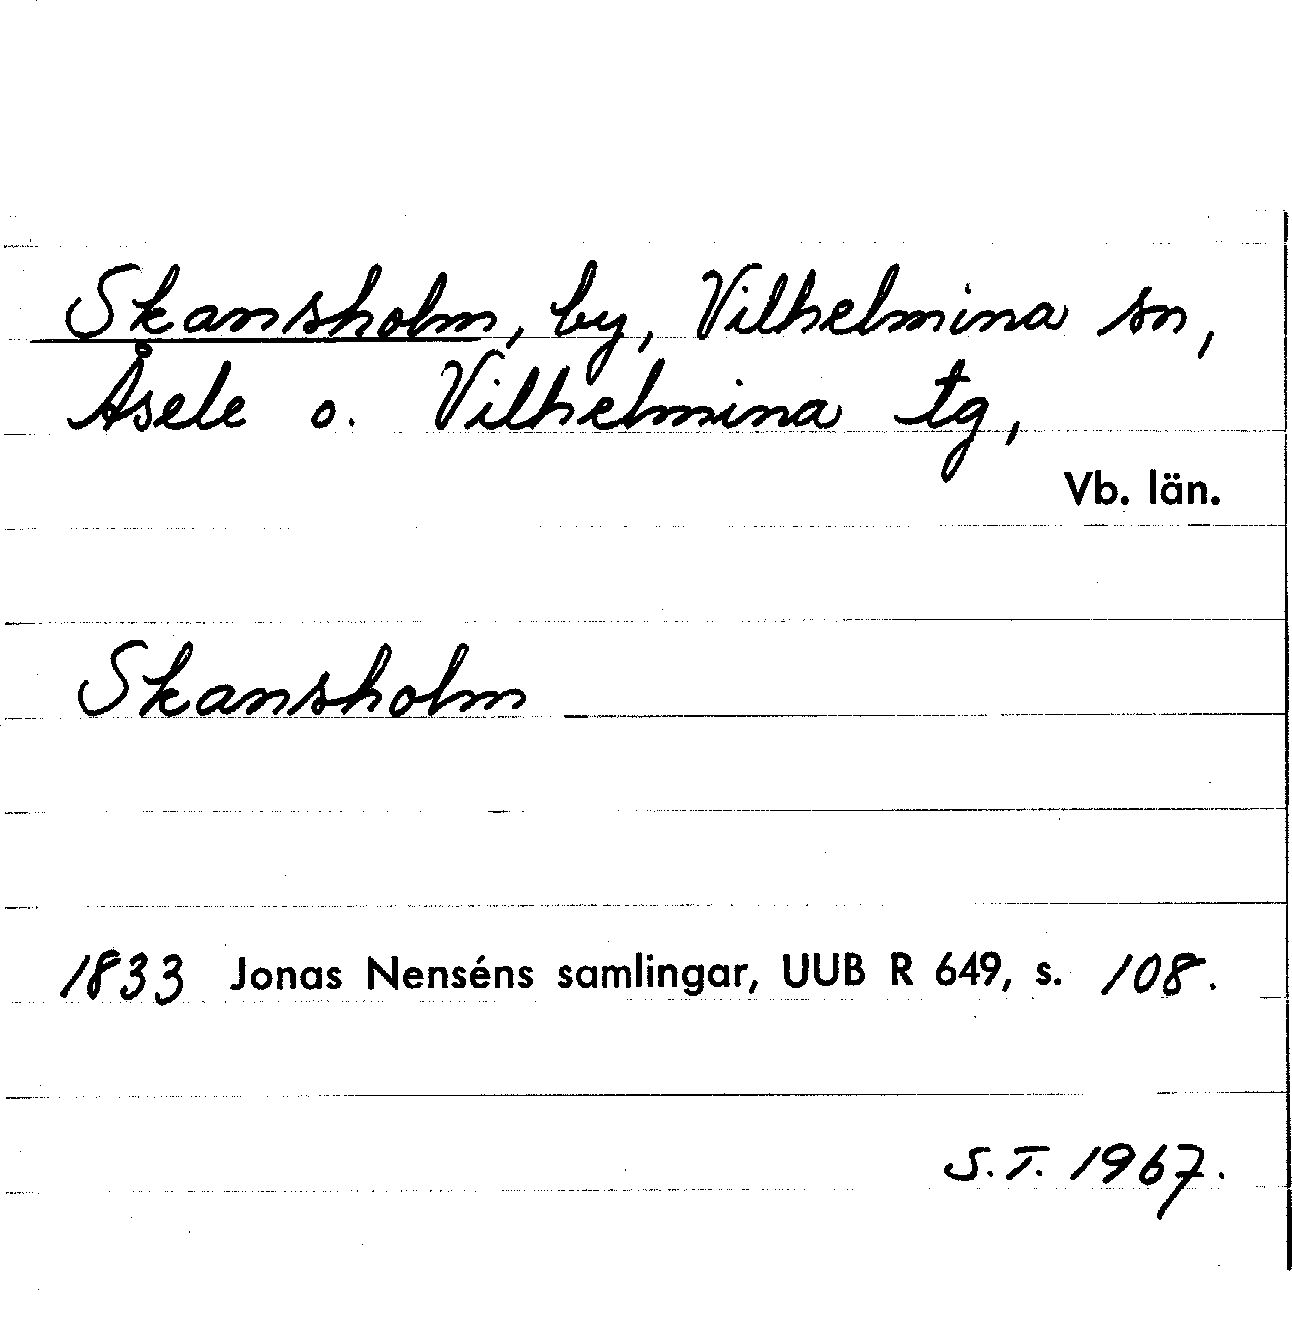 Skansholm, by, Vilhelmina sn,
Åsele o. Vilhelmina tg,
Vb. län.
Skansholm
1833 Jonas Nenséns samlingar, UUB R 649, s. 108.
S.T. 1967.